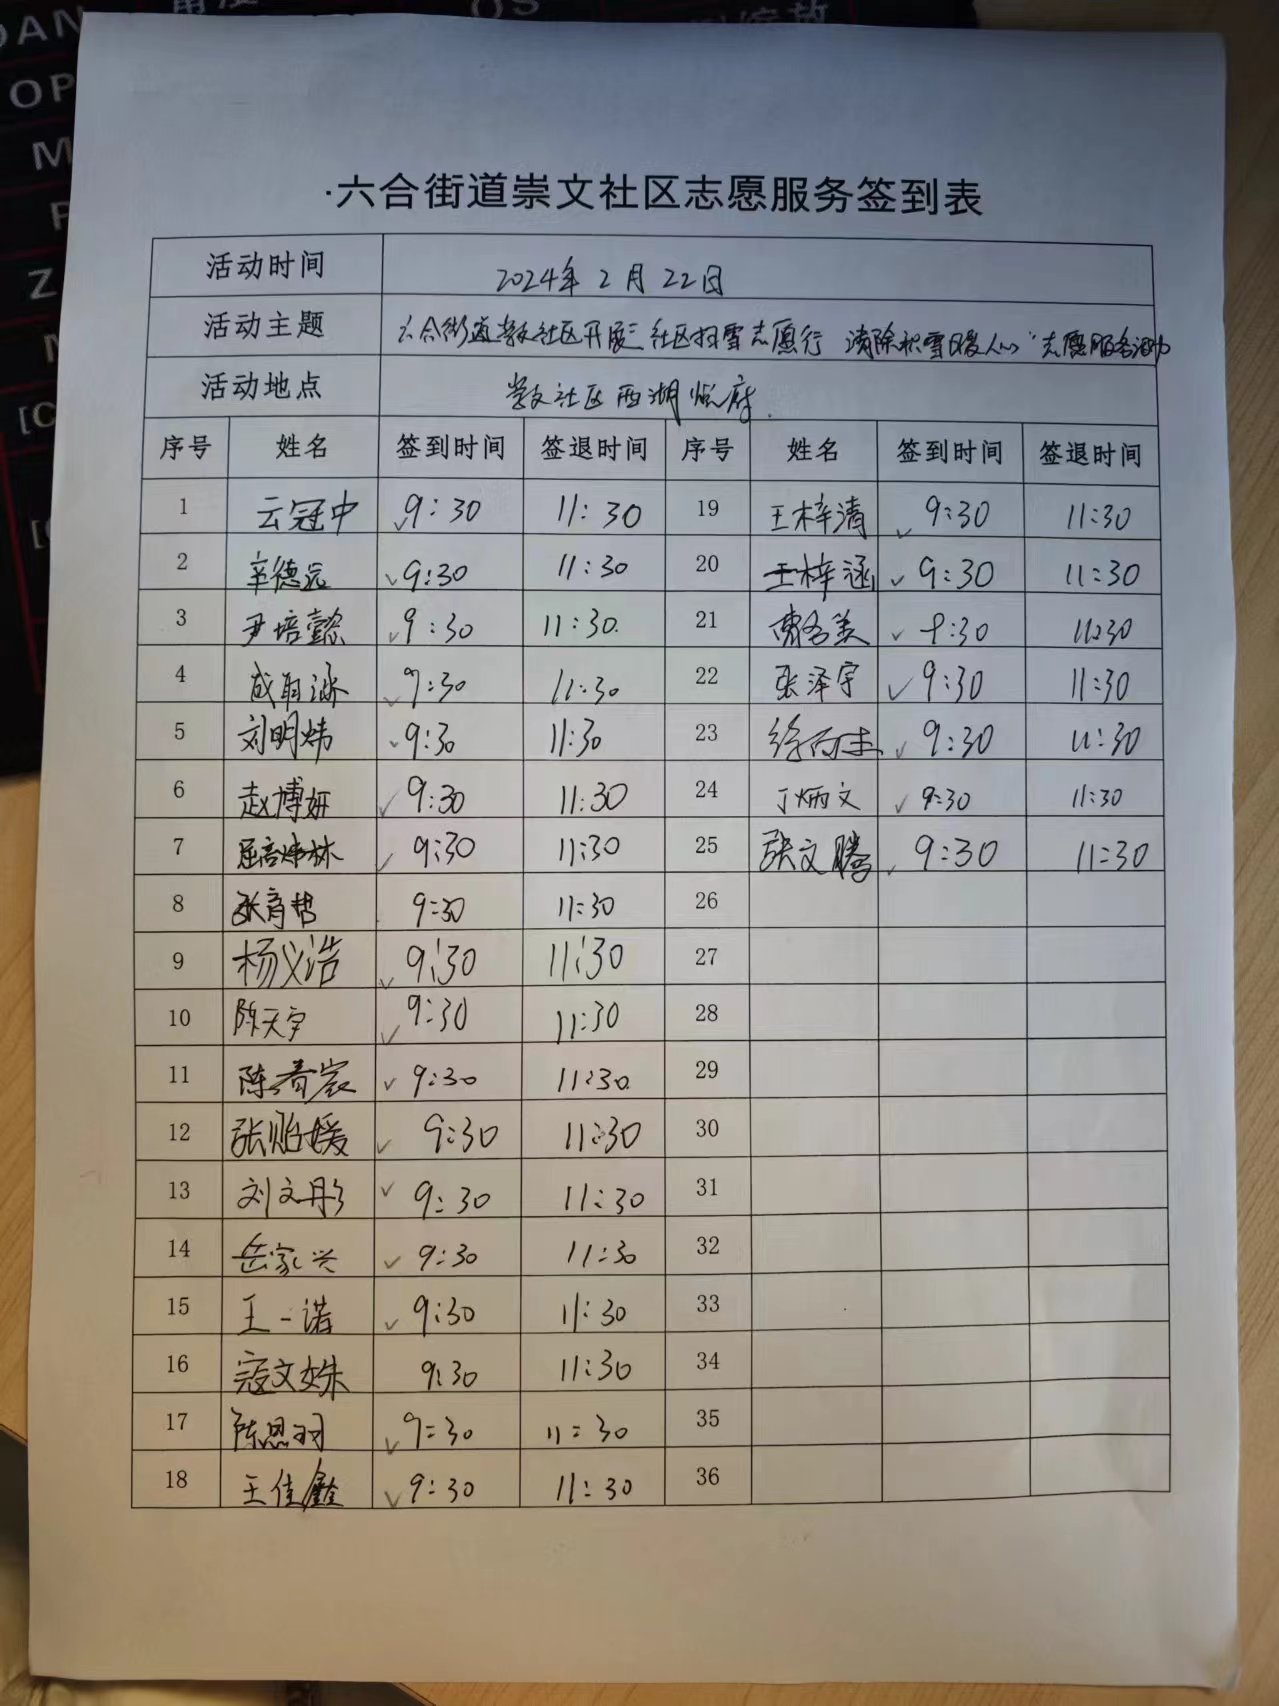 DAN
OS
OP
M
F
Z
[C
·六合街道崇文社区志愿服务签到表
活动时间 2024年2月22日
活动主题 六合街道崇文社区开展"社区扫雪志愿行 清除积雪暖人心"志愿服务活动
活动地点 崇文社区西湖悦府
序号 姓名 签到时间 签退时间 序号 姓名 签到时间 签退时间
1 云冠中 ✓9:30 11:30 19 王梓清 ✓9:30 11:30
2 辛德远 ✓9:30 11:30 20 王梓涵 ✓9:30 11:30
3 尹培懿 ✓9:30 11:30. 21 ✓9:30 11:30
4 ✓9:30 11:30 22 张泽宇 ✓9:30 11:30
5 刘明炜 ✓9:30 11:30 23 ✓9:30 11:30
6 赵博妍 ✓9:30 11:30 24 丁炳文 ✓9:30 11:30
7 ✓9:30 11:30 25 张文腾 ✓9:30 11:30
8 张育哲 9:30 11:30 26
9 杨义浩 ✓9:30 11:30 27
10 陈天宇 ✓9:30 11:30 28
11 ✓9:30 11:30 29
12 张贻媛 ✓9:30 11:30 30
13 刘文彤 ✓9:30 11:30 31
14 岳家兴 ✓9:30 11:30 32
15 王一诺 ✓9:30 11:30 33
16 寇文姝 9:30 11:30 34
17 陈恩羽 ✓9:30 11:30 35
18 王佳鑫 ✓9:30 11:30 36